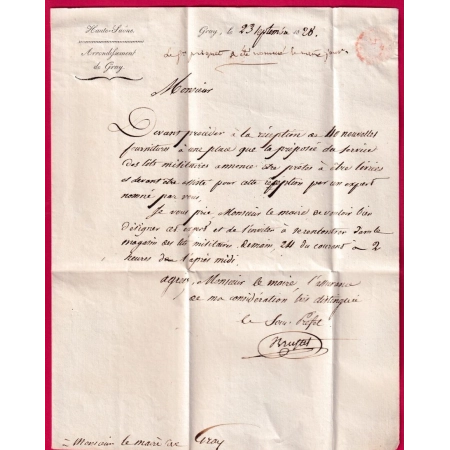 Haute-Saône.
Arrondissement
de Gray
Gray, le 23 septembre 1828.
Le Sr prisquet a été nommé le même jour
Monsieur
Devant procéder à la réception de 40 nouvelles
fournitures à une place que la préposée du service
des lits militaires annonce être prêtes à être livrées
et devant être assisté pour cette réception par un expert
nommé par vous,
Je vous prie, Monsieur le maire de vouloir bien
désigner cet expert et de l'inviter à se rencontrer dans le
magasin des lits militaires demain, 24 du courant à 2
heures de l'après midi.
agréez, Monsieur le maire, l'assurance
de ma considération très distinguée
le Sous-Préfet
= Monsieur le maire de Gray